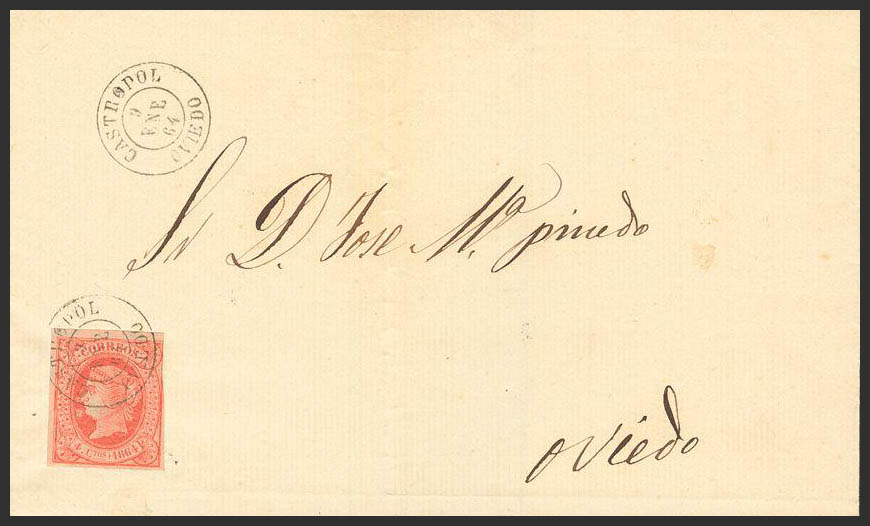 CASTROPOL
9
ENE
64
OVIEDO
Sr D. Jose Mª. pinedo
CORREOS
4 CTOS 1864
oviedo